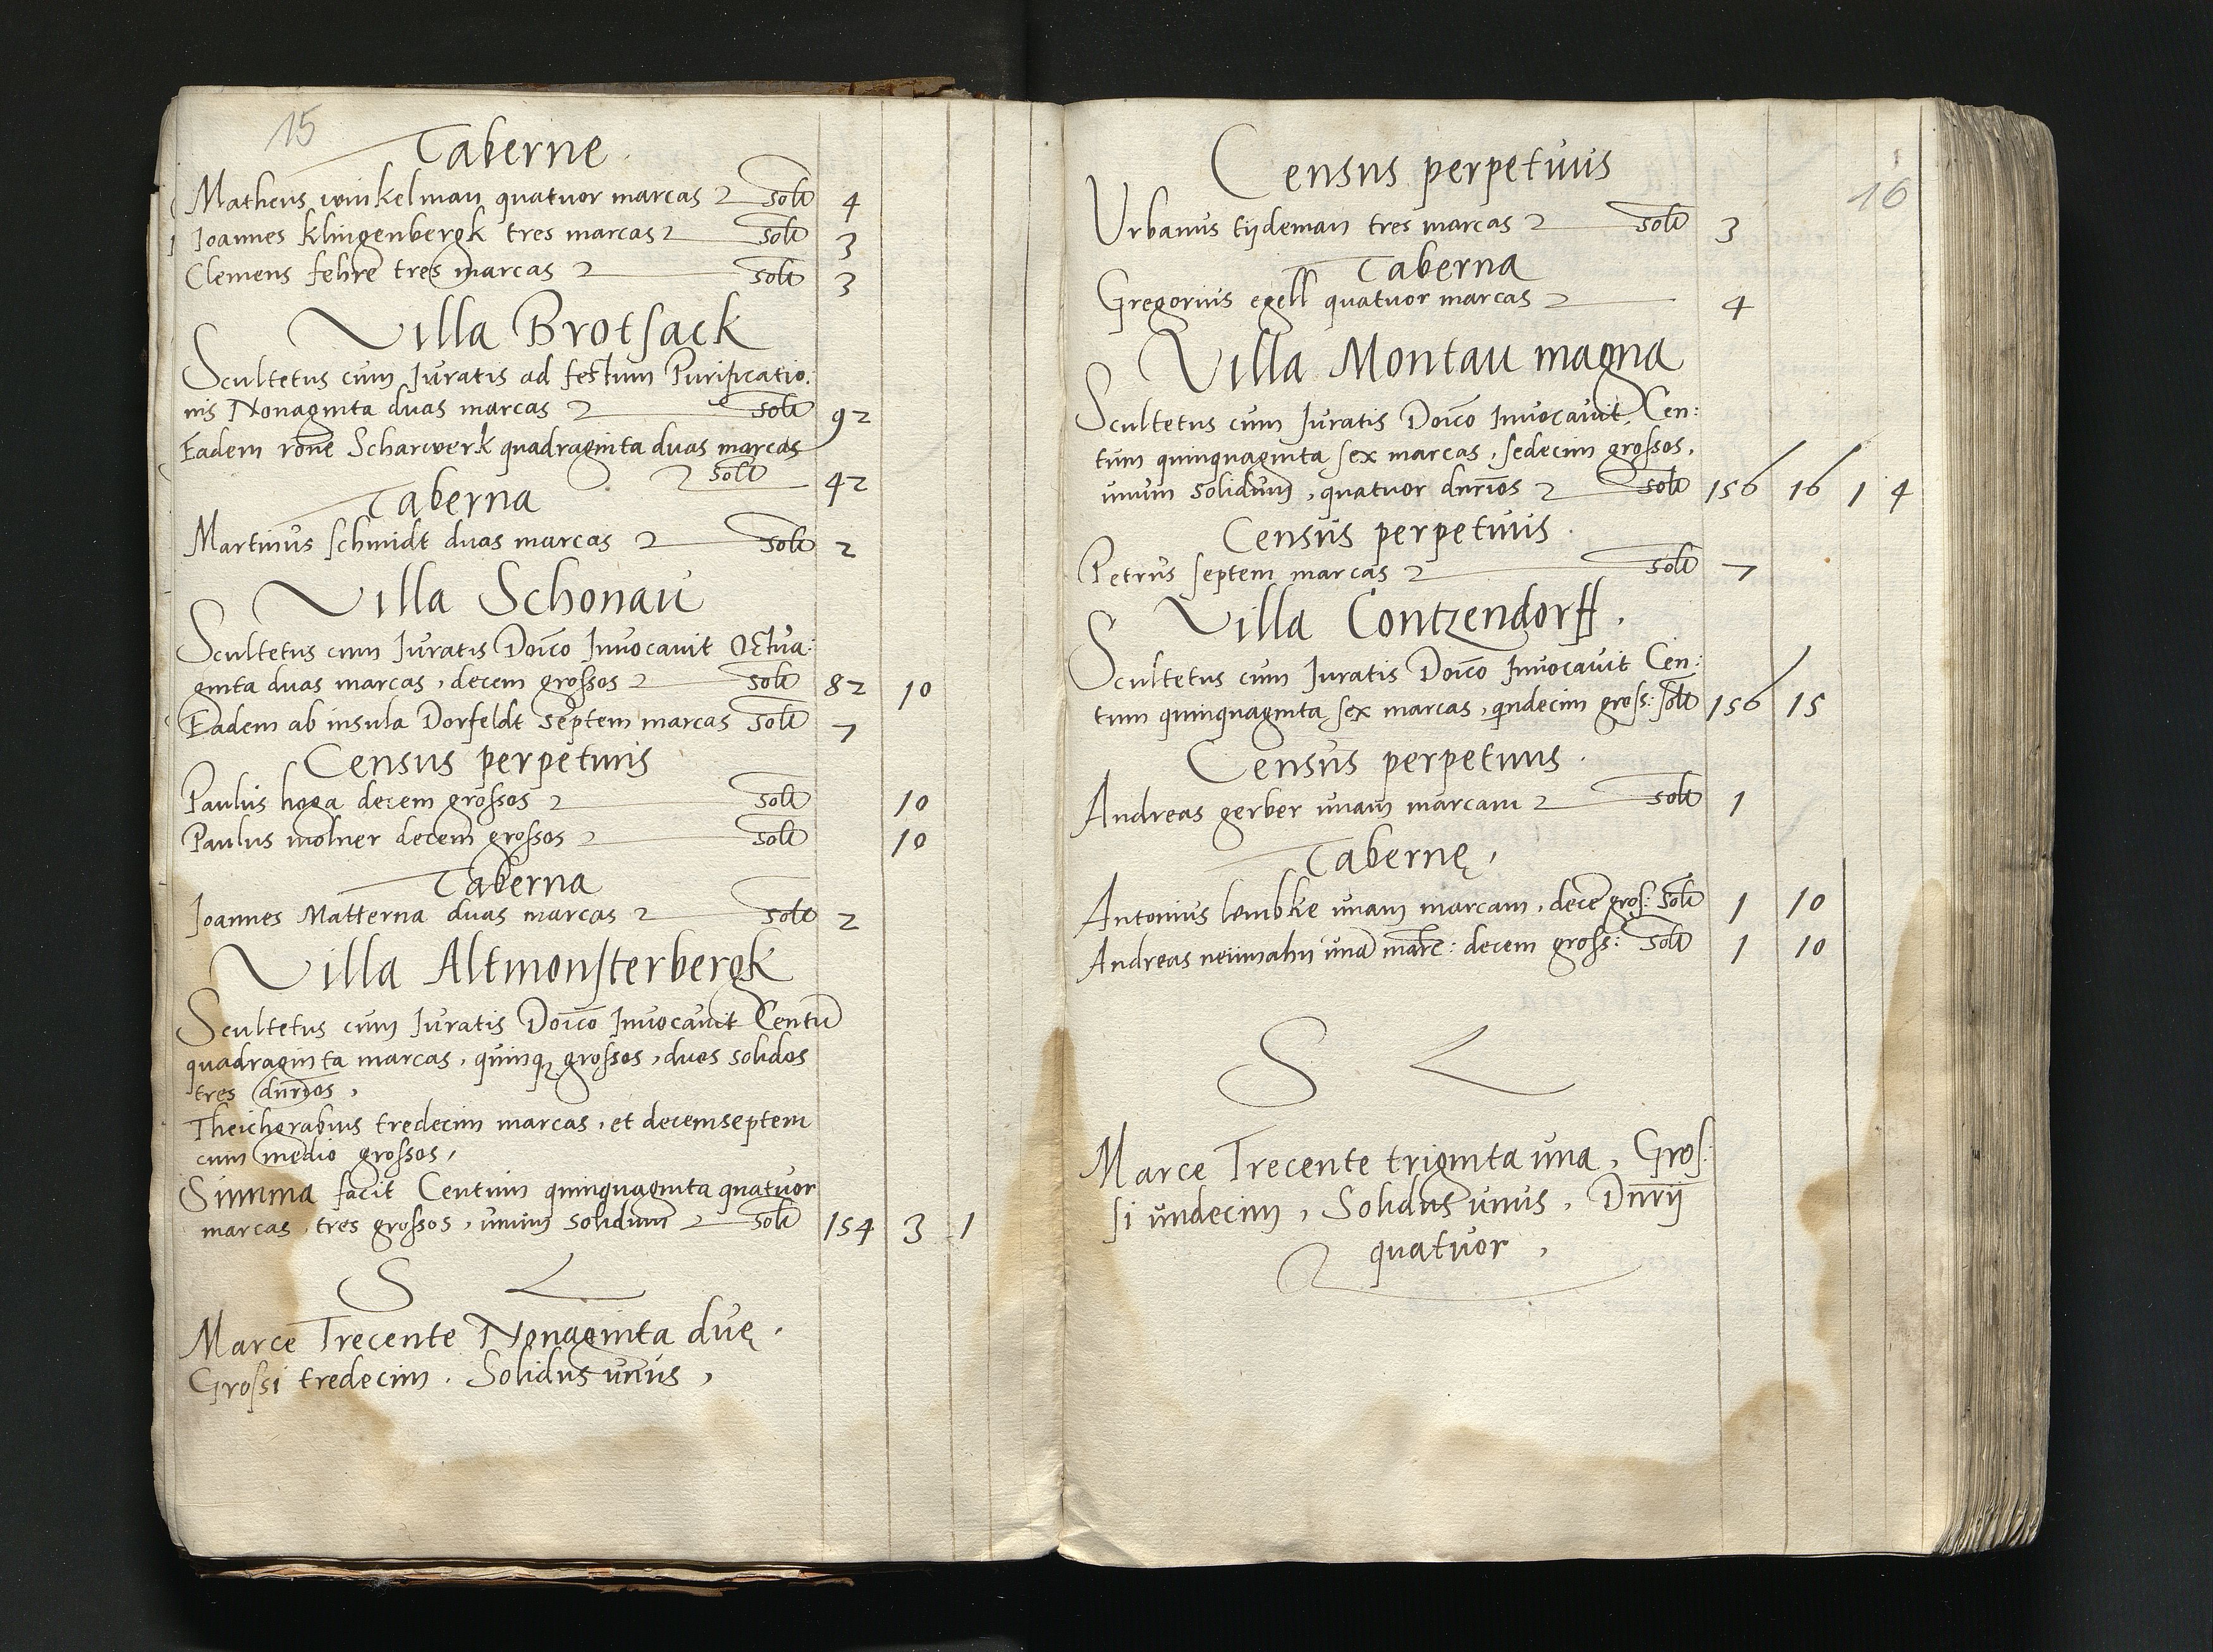 15
Taberne
Matheus winkelman quatuor marcas solt 4
Joannes klingenbergk tres marcas solt 3
Clemens fehre tres marcas solt 3
Villa Brotsack
Scultetus cum Juratis ad festum Purificatio:
nis Nonaginta duas marcas solt 92
Eadem rone Scharwerk quadraginta duas marcas
solt 42
Taberna
Martinus schmidt duas marcas solt 2
Villa Schonau
Scultetus cum Juratis Doico Invocavit Octua:
ginta duas marcas, decem grossos solt 82 10
Eadem ab insula Dorfeldt septem marcas solt 7
Census perpetuus
Paulus hoga decem grossos solt 10
Paulus molner decem grossos solt 10
Taberna
Joannes Matterna duas marcas solt 2
Villa Altmonsterbergk
Scultetus cum Juratis Doico Invocavit Centu
quadraginta marcas, quinq grossos, duos solidos
tres dnrios,
Theichgrabius tredecim marcas, et decemseptem
cum medio grossos,
Summa facit Centum quinquaginta quatuor
marcas, tres grossos, unum solidum solt 154 3 1
S L
Marce Trecente Nonaginta duę.
Grossi tredecim. Solidus unus,
16
Census perpetuus
Urbanus tijdeman tres marcas solt 3
Taberna
Gregorius egell quatuor marcas 4
Villa Montau magna
Scultetus cum Juratis Doico Invocavit Cen:
tum quinquaginta sex marcas, sedecim grossos,
unum solidum, quatuor dnrios solt 156 16 1 4
Census perpetuus.
Petrus septem marcas solt 7
Villa Contzendorff.
Scultetus cum Juratis Doico Invocavit Cen:
tum quinquaginta sex marcas, qindecim gross: solt 156 15
Census perpetuus.
Andreas gerber unam marcam solt 1
Tabernę,
Antonius lembke unam marcam, dece gros: solt 1 10
Andreas neumahn una marc: decem gross: solt 1 10
S L
Marce Trecente triginta una, Gros:
si undecim, Solidus unus, Dnrij
quatuor,